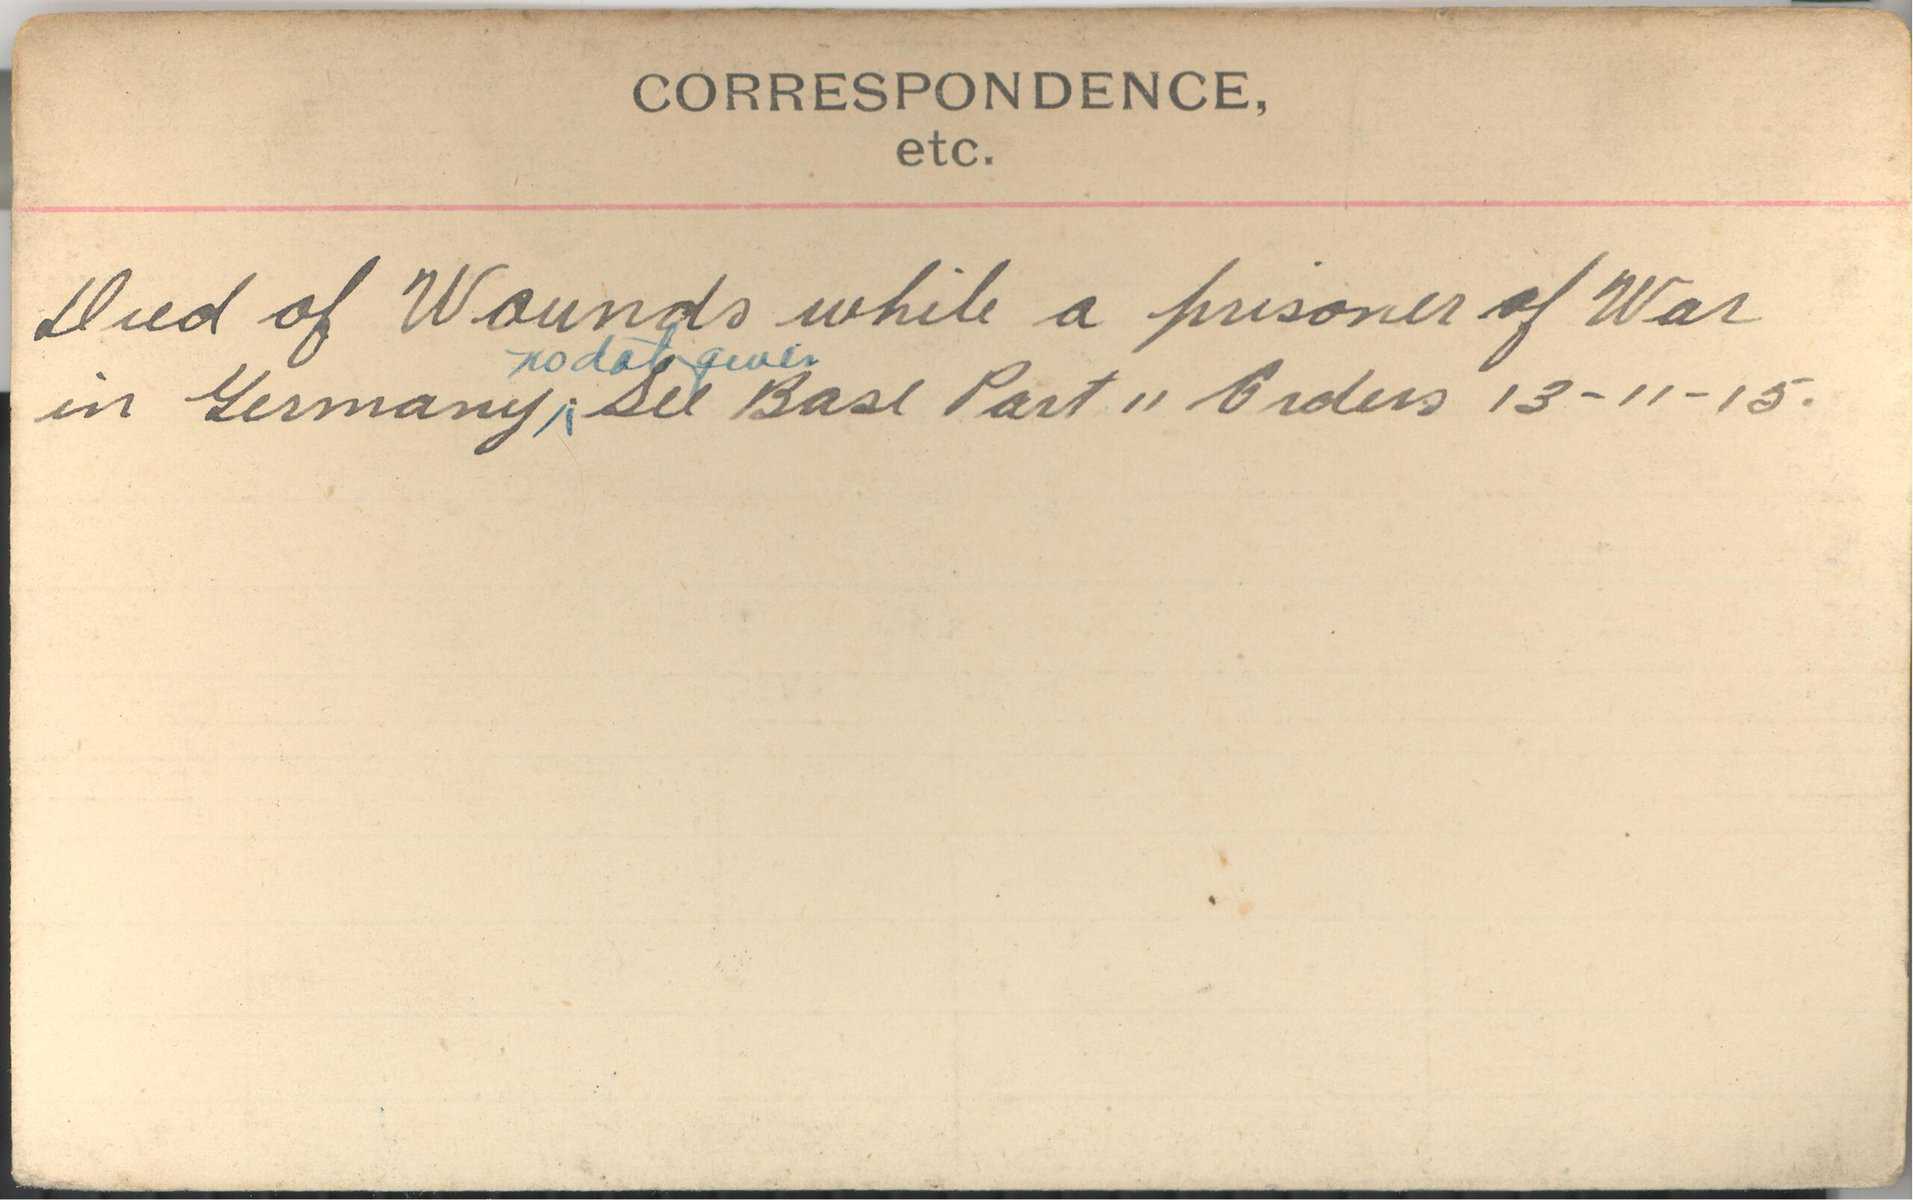 CORRESPONDENCE,
etc.
Died of Wounds while a prisoner of War
no date given
in Germany, See Base Part " Orders 13-11-15.